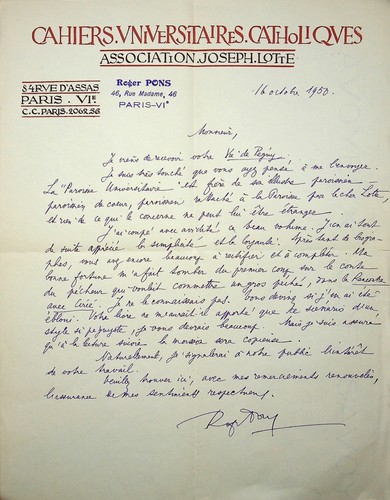 CAHIERS.VNIVERSITAIRES.CATHOLIQVES
ASSOCIATION.JOSEPH.LOTTE
84 RVE D'ASSAS
PARIS.VIe
C.C.PARIS.2062.56
Roger PONS
46, Rue Madame, 46
PARIS-VIe
16 octobre 1950.
Monsieur,
Je viens de recevoir votre Vie de Péguy.
Je suis très touché que vous ayez pensé à me l'envoyer.
La "Paroisse Universitaire" est fière de son illustre paroissien -
paroissien de cœur, paroissien rattaché à la Paroisse par le cher Lotte,
et rien de ce qui le concerne ne peut lui être étranger.
J'ai coupé avec avidité ce beau volume. J'en ai tout
de suite apprécié la simplicité et la loyauté. Après tant de biogra-
phes, vous avez encore beaucoup à rectifier et à compléter. Ma
bonne fortune m'a fait tomber du premier coup sur le conte
du pécheur qui voulait connaître un gros péché, dans la Rencontre
avec Circé. Je ne le connaissais pas. Vous devinez si j'en ai été
ébloui. Votre livre ne m'aurait-il apporté que ce scenario d'un
style si péguyste, je vous devrais beaucoup. Mais je suis assuré
qu'à la lecture suivie la moisson sera copieuse.
Naturellement, je signalerai à notre public l'intérêt
de votre travail.
Veuillez trouver ici, avec mes remerciements renouvelés,
l'assurance de mes sentiments respectueux.
Roger Pons